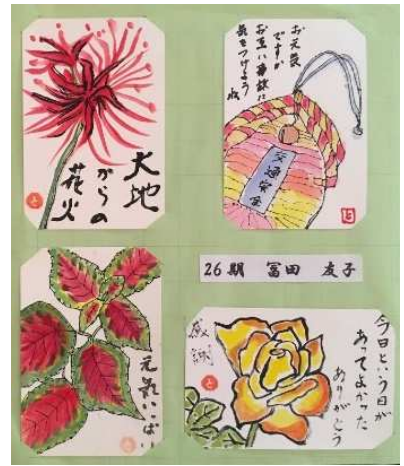 大地
からの
花火
と
お元気
ですか
お互い事故に
気をつけよう
ね
交通安全
と
26期 冨田 友子
元気いっぱい
と
今日という日が
あってよかった
ありがとう
感謝
と